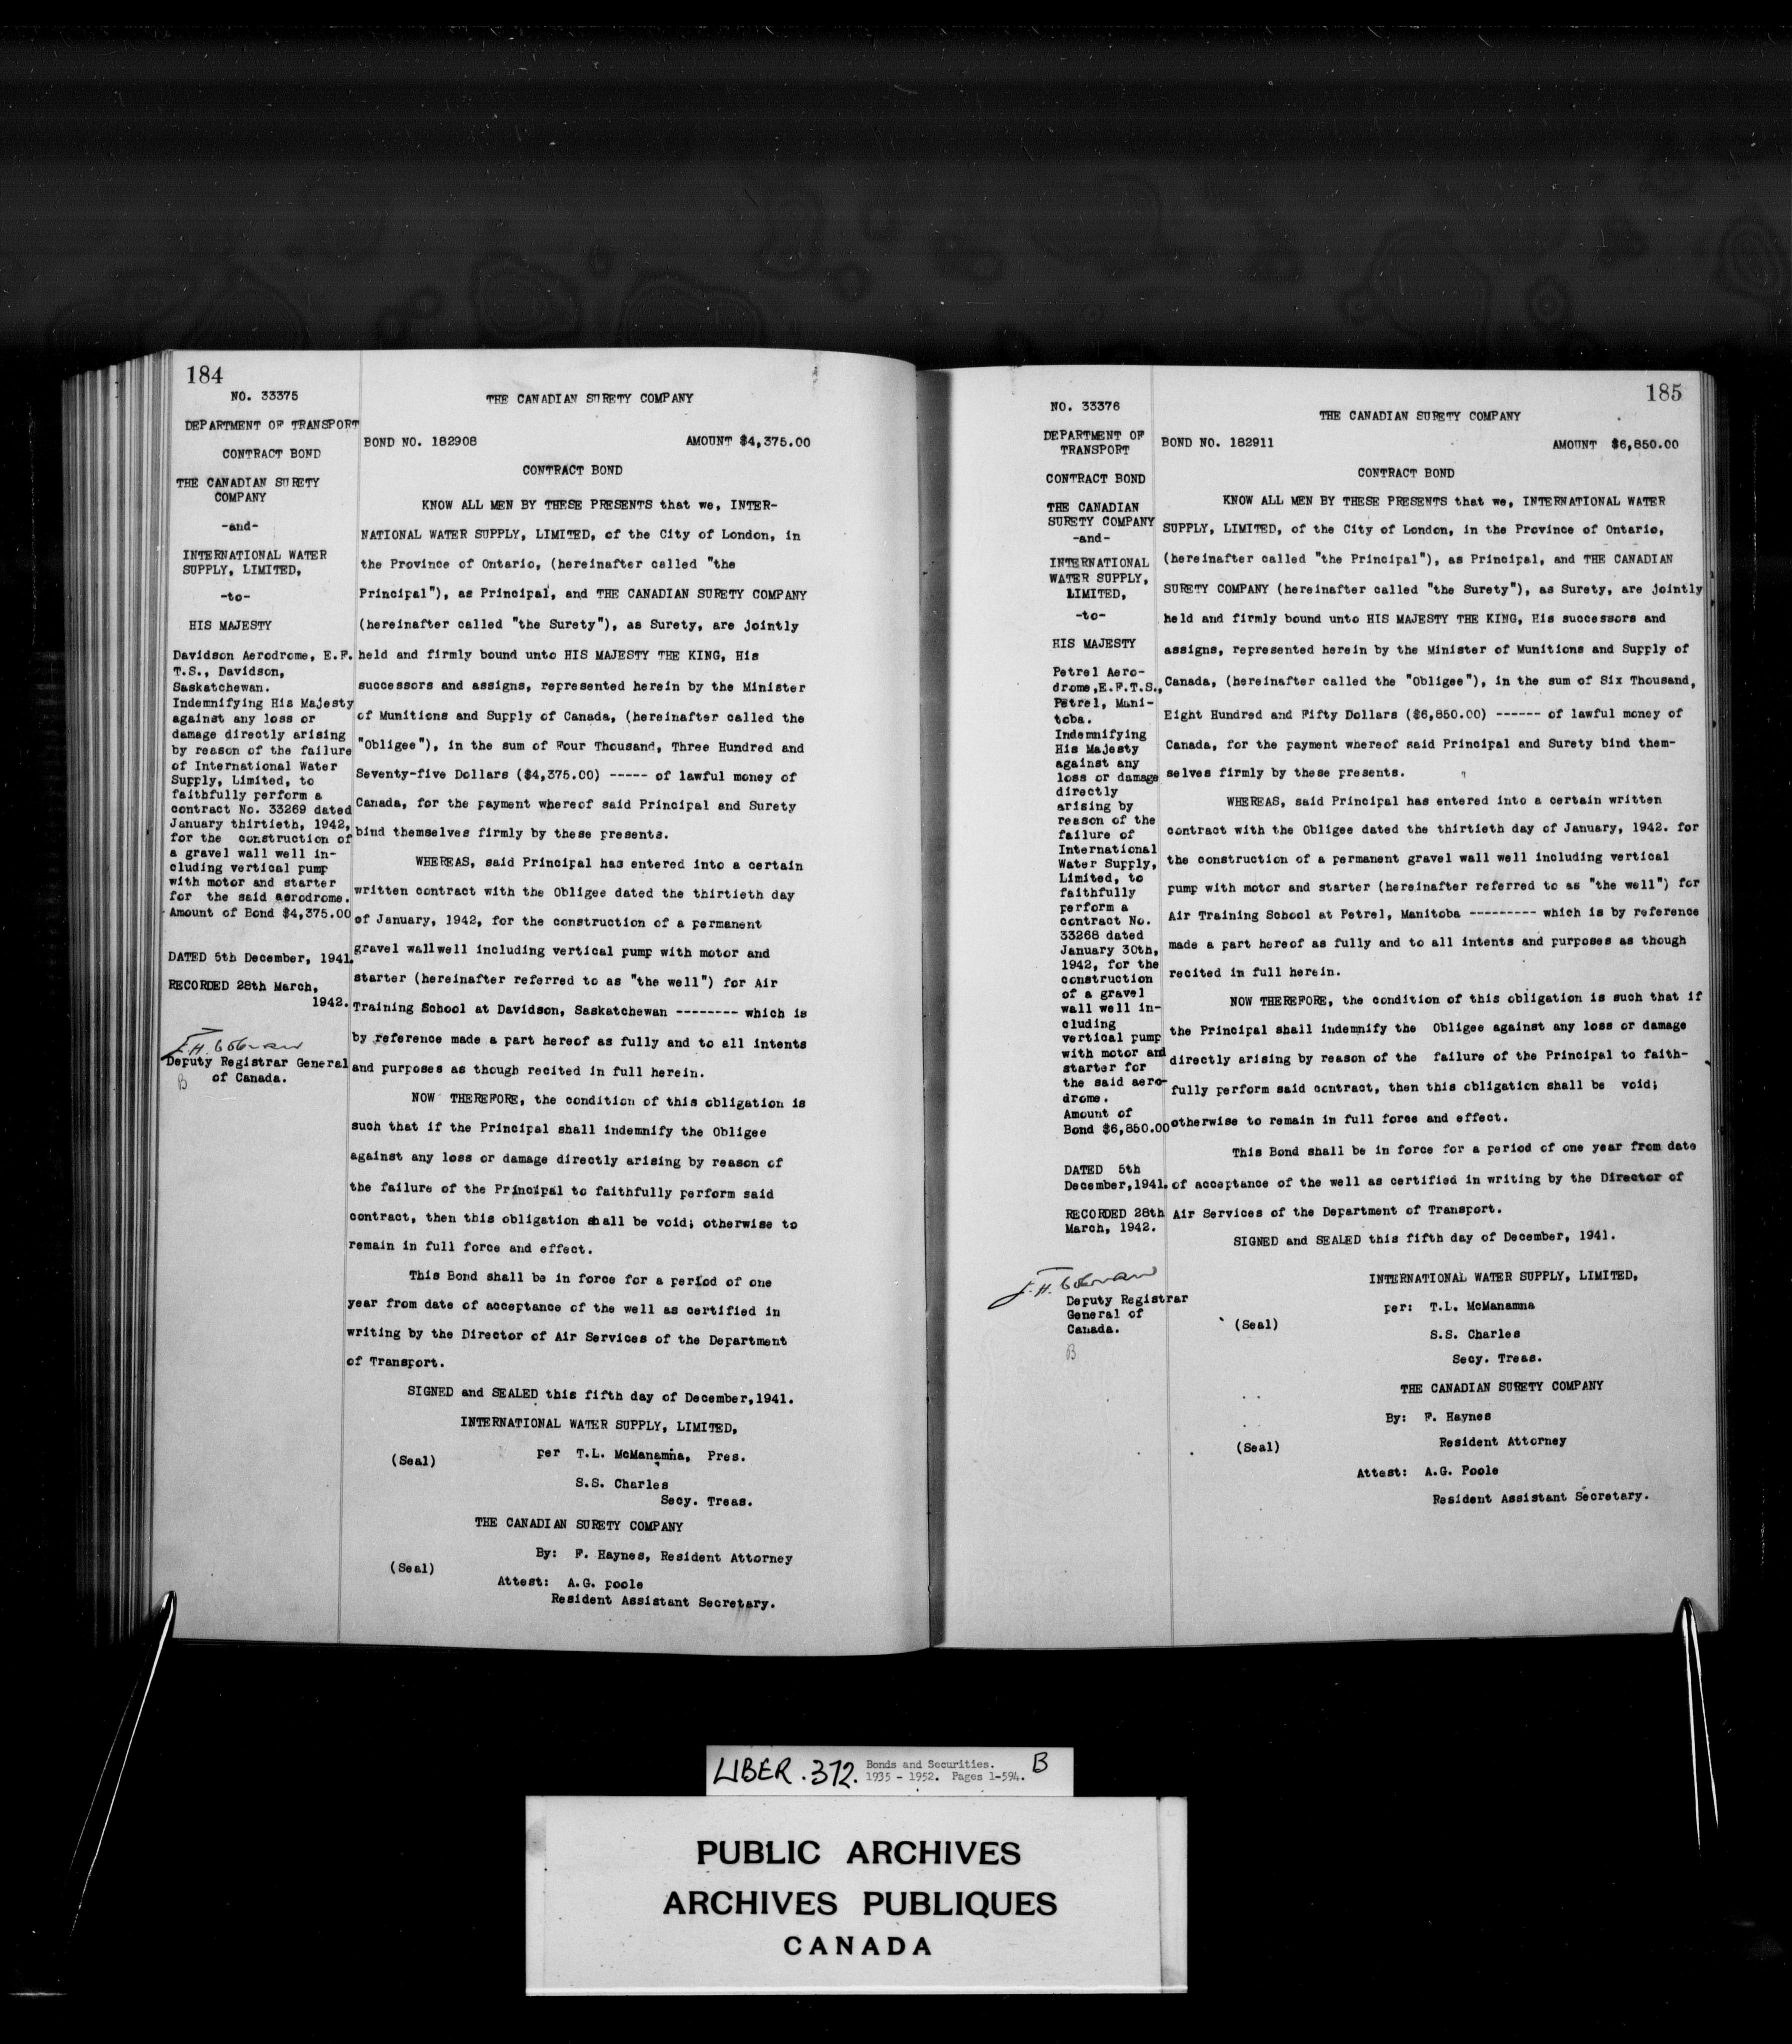 184
NO. 33375
DEPARTMENT OF TRANSPORT
CONTRACT BOND
THE CANADIAN SURETY
COMPANY
-and-
INTERNATIONAL WATER
SUPPLY, LIMITED,
-to-
HIS MAJESTY
Davidson Aerodrome, E.F.
T.S., Davidson,
Saskatchewan.
Indemnifying His Majesty
against any loss or
damage directly arising
by reason of the failure
of International Water
Supply, Limited, to
faithfully perform a
contract No. 33269 dated
January thirtieth, 1942,
for the construction of
a gravel wall well in-
cluding vertical pump
with motor and starter
for the said aerodrome.
Amount of Bond $4,375.00
DATED 5th December, 1941.
RECORDED 28th March,
1942.
Deputy Registrar General
of Canada.
B
THE CANADIAN SURETY COMPANY
BOND NO. 182908 AMOUNT $4,375.00
CONTRACT BOND
KNOW ALL MEN BY THESE PRESENTS that we, INTER-
NATIONAL WATER SUPPLY, LIMITED, of the City of London, in
the Province of Ontario, (hereinafter called "the
Principal"), as Principal, and THE CANADIAN SURETY COMPANY
(hereinafter called "the Surety"), as Surety, are jointly
held and firmly bound unto HIS MAJESTY THE KING, His
successors and assigns, represented herein by the Minister
of Munitions and Supply of Canada, (hereinafter called the
"Obligee"), in the sum of Four Thousand, Three Hundred and
Seventy-five Dollars ($4,375.00) ----- of lawful money of
Canada, for the payment whereof said Principal and Surety
bind themselves firmly by these presents.
WHEREAS, said Principal has entered into a certain
written contract with the Obligee dated the thirtieth day
of January, 1942, for the construction of a permanent
gravel wallwell including vertical pump with motor and
starter (hereinafter referred to as "the well") for Air
Training School at Davidson, Saskatchewan -------- which is
by reference made a part hereof as fully and to all intents
and purposes as though recited in full herein.
NOW THEREFORE, the condition of this obligation is
such that if the Principal shall indemnify the Obligee
against any loss or damage directly arising by reason of
the failure of the Principal to faithfully perform said
contract, then this obligation shall be void; otherwise to
remain in full force and effect.
This Bond shall be in force for a period of one
year from date of acceptance of the well as certified in
writing by the Director of Air Services of the Department
of Transport.
SIGNED and SEALED this fifth day of December,1941.
INTERNATIONAL WATER SUPPLY, LIMITED,
(Seal) per T.L. McManamna, Pres.
S.S. Charles
Secy. Treas.
THE CANADIAN SURETY COMPANY
By: F. Haynes, Resident Attorney
(Seal)
Attest: A.G. poole
Resident Assistant Secretary.
185
NO. 33376
DEPARTMENT OF
TRANSPORT
CONTRACT BOND
THE CANADIAN
SURETY COMPANY
-and-
INTERNATIONAL
WATER SUPPLY,
LIMITED,
-to-
HIS MAJESTY
Petrel Aero-
drome,E.F.T.S.,
Petrel, Mani-
toba.
Indemnifying
His Majesty
against any
loss or damage
directly
arising by
reason of the
failure of
International
Water Supply,
Limited, to
faithfully
perform a
contract No.
33268 dated
January 30th,
1942, for the
construction
of a gravel
wall well in-
cluding
vertical pump
with motor and
starter for
the said aero-
drome.
Amount of
Bond $6,850.00
DATED 5th
December,1941.
RECORDED 28th
March, 1942.
Deputy Registrar
General of
Canada.
B
THE CANADIAN SURETY COMPANY
BOND NO. 182911 AMOUNT $6,850.00
CONTRACT BOND
KNOW ALL MEN BY THESE PRESENTS that we, INTERNATIONAL WATER
SUPPLY, LIMITED, of the City of London, in the Province of Ontario,
(hereinafter called "the Principal"), as Principal, and THE CANADIAN
SURETY COMPANY (hereinafter called "the Surety"), as Surety, are jointly
held and firmly bound unto HIS MAJESTY THE KING, His successors and
assigns, represented herein by the Minister of Munitions and Supply of
Canada, (hereinafter called the "Obligee"), in the sum of Six Thousand,
Eight Hundred and Fifty Dollars ($6,850.00) ------ of lawful money of
Canada, for the payment whereof said Principal and Surety bind them-
selves firmly by these presents.
WHEREAS, said Principal has entered into a certain written
contract with the Obligee dated the thirtieth day of January, 1942. for
the construction of a permanent gravel wall well including vertical
pump with motor and starter (hereinafter referred to as "the well") for
Air Training School at Petrel, Manitoba --------- which is by reference
made a part hereof as fully and to all intents and purposes as though
recited in full herein.
NOW THEREFORE, the condition of this obligation is such that if
the Principal shall indemnify the Obligee against any loss or damage
directly arising by reason of the failure of the Principal to faith-
fully perform said contract, then this obligation shall be void;
otherwise to remain in full force and effect.
This Bond shall be in force for a period of one year from date
of acceptance of the well as certified in writing by the Director of
Air Services of the Department of Transport.
SIGNED and SEALED this fifth day of December, 1941.
INTERNATIONAL WATER SUPPLY, LIMITED,
per: T.L. McManamna
(Seal)
S.S. Charles
Secy. Treas.
THE CANADIAN SURETY COMPANY
By: F. Haynes
(Seal) Resident Attorney
Attest: A.G. Poole
Resident Assistant Secretary.
LIBER. 372. Bonds and Securities. B
1935 - 1952. Pages 1-594.
PUBLIC ARCHIVES
ARCHIVES PUBLIQUES
CANADA